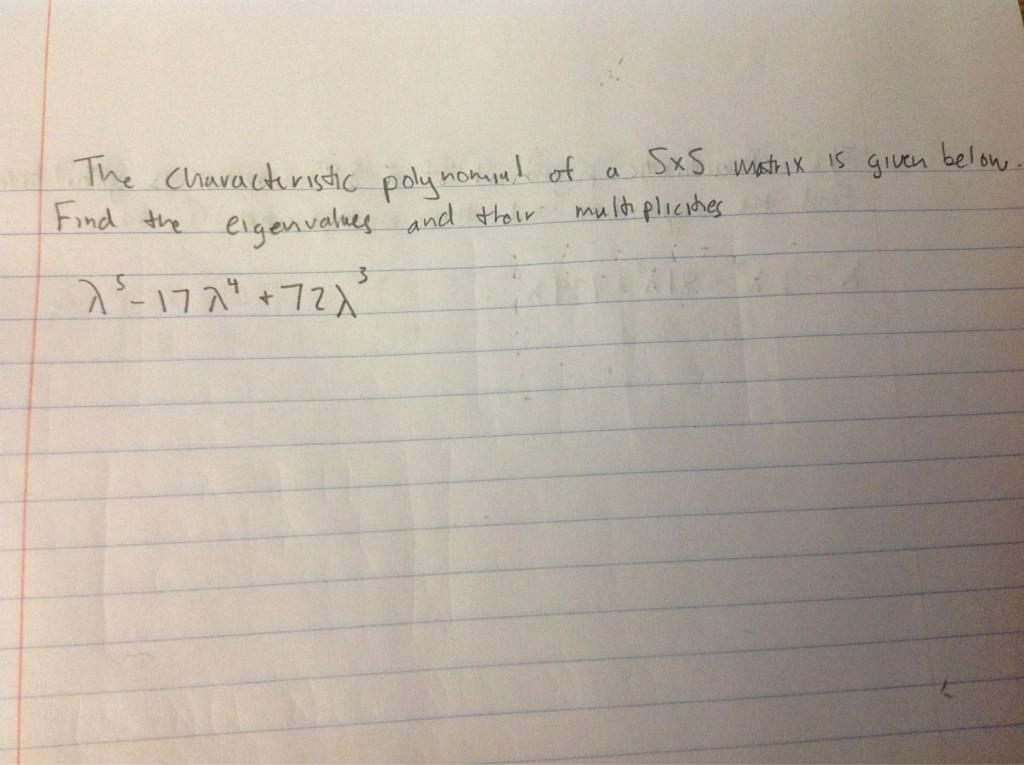 The characteristic polynomial of a 5x5 matrix is given below.
Find the eigenvalues and their multiplicities
λ⁵ - 17λ⁴ + 72λ³